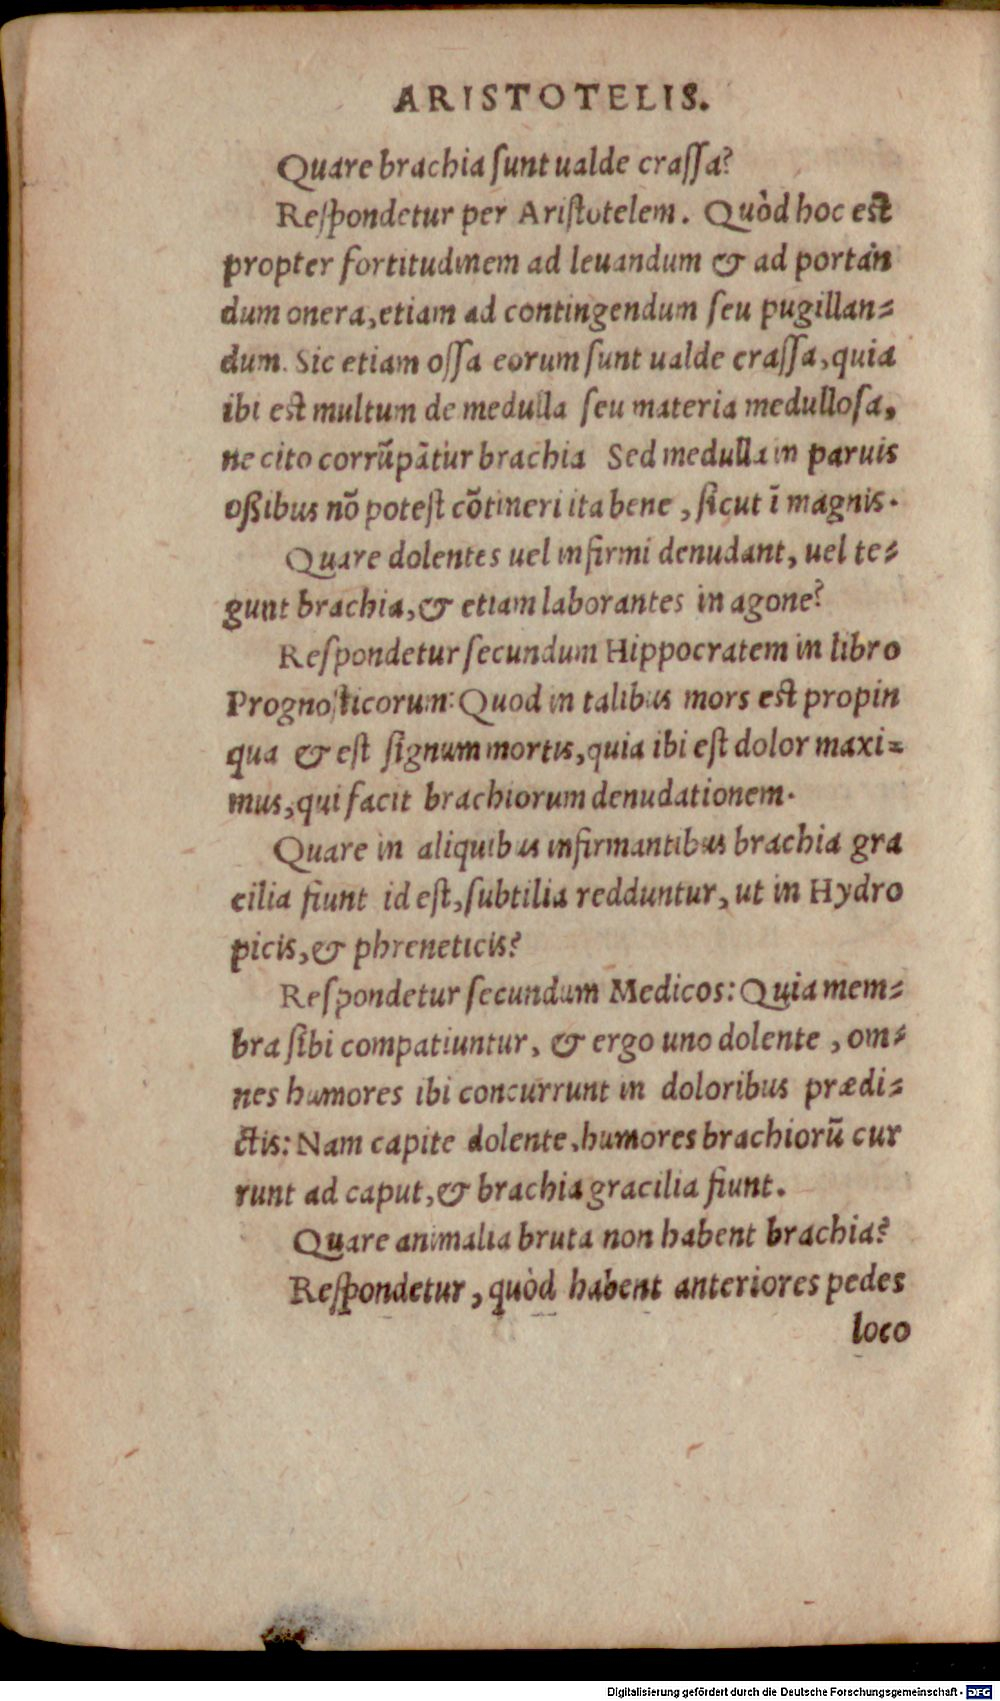 ARISTOTELIS.
Quare brachia ſunt ualde craſſa?
Reſpondetur per Ariſtotelem. Quòd hoc eſt
propter fortitudinem ad leuandum & ad portan
dum onera, etiam ad contingendum ſeu pugillan⸗
dum. Sic etiam oſſa eorum ſunt ualde craſſa, quia
ibi eſt multum de medulla ſeu materia medulloſa,
ne cito corrũpãtur brachia Sed medulla in paruis
oßibus nõ poteſt cõtineri ita bene, ſicut ĩ magnis.
Quare dolentes uel infirmi denudant, uel te⸗
gunt brachia, & etiam laborantes in agone?
Reſpondetur ſecundum Hippocratem in libro
Prognoſticorum: Quod in talibus mors eſt propin
qua & eſt ſignum mortis, quia ibi eſt dolor maxi⸗
mus, qui facit brachiorum denudationem.
Quare in aliquibus infirmantibus brachia gra
cilia fiunt id eſt, ſubtilia redduntur, ut in Hydro
picis, & phreneticis?
Reſpondetur ſecundum Medicos: Quia mem⸗
bra ſibi compatiuntur, & ergo uno dolente, om⸗
nes humores ibi concurrunt in doloribus prædi⸗
ctis: Nam capite dolente, humores brachiorũ cur
runt ad caput, & brachia gracilia fiunt.
Quare animalia bruta non habent brachia?
Reſpondetur, quòd habent anteriores pedes
loco
Digitalisierung gefördert durch die Deutsche Forschungsgemeinschaft - DFG